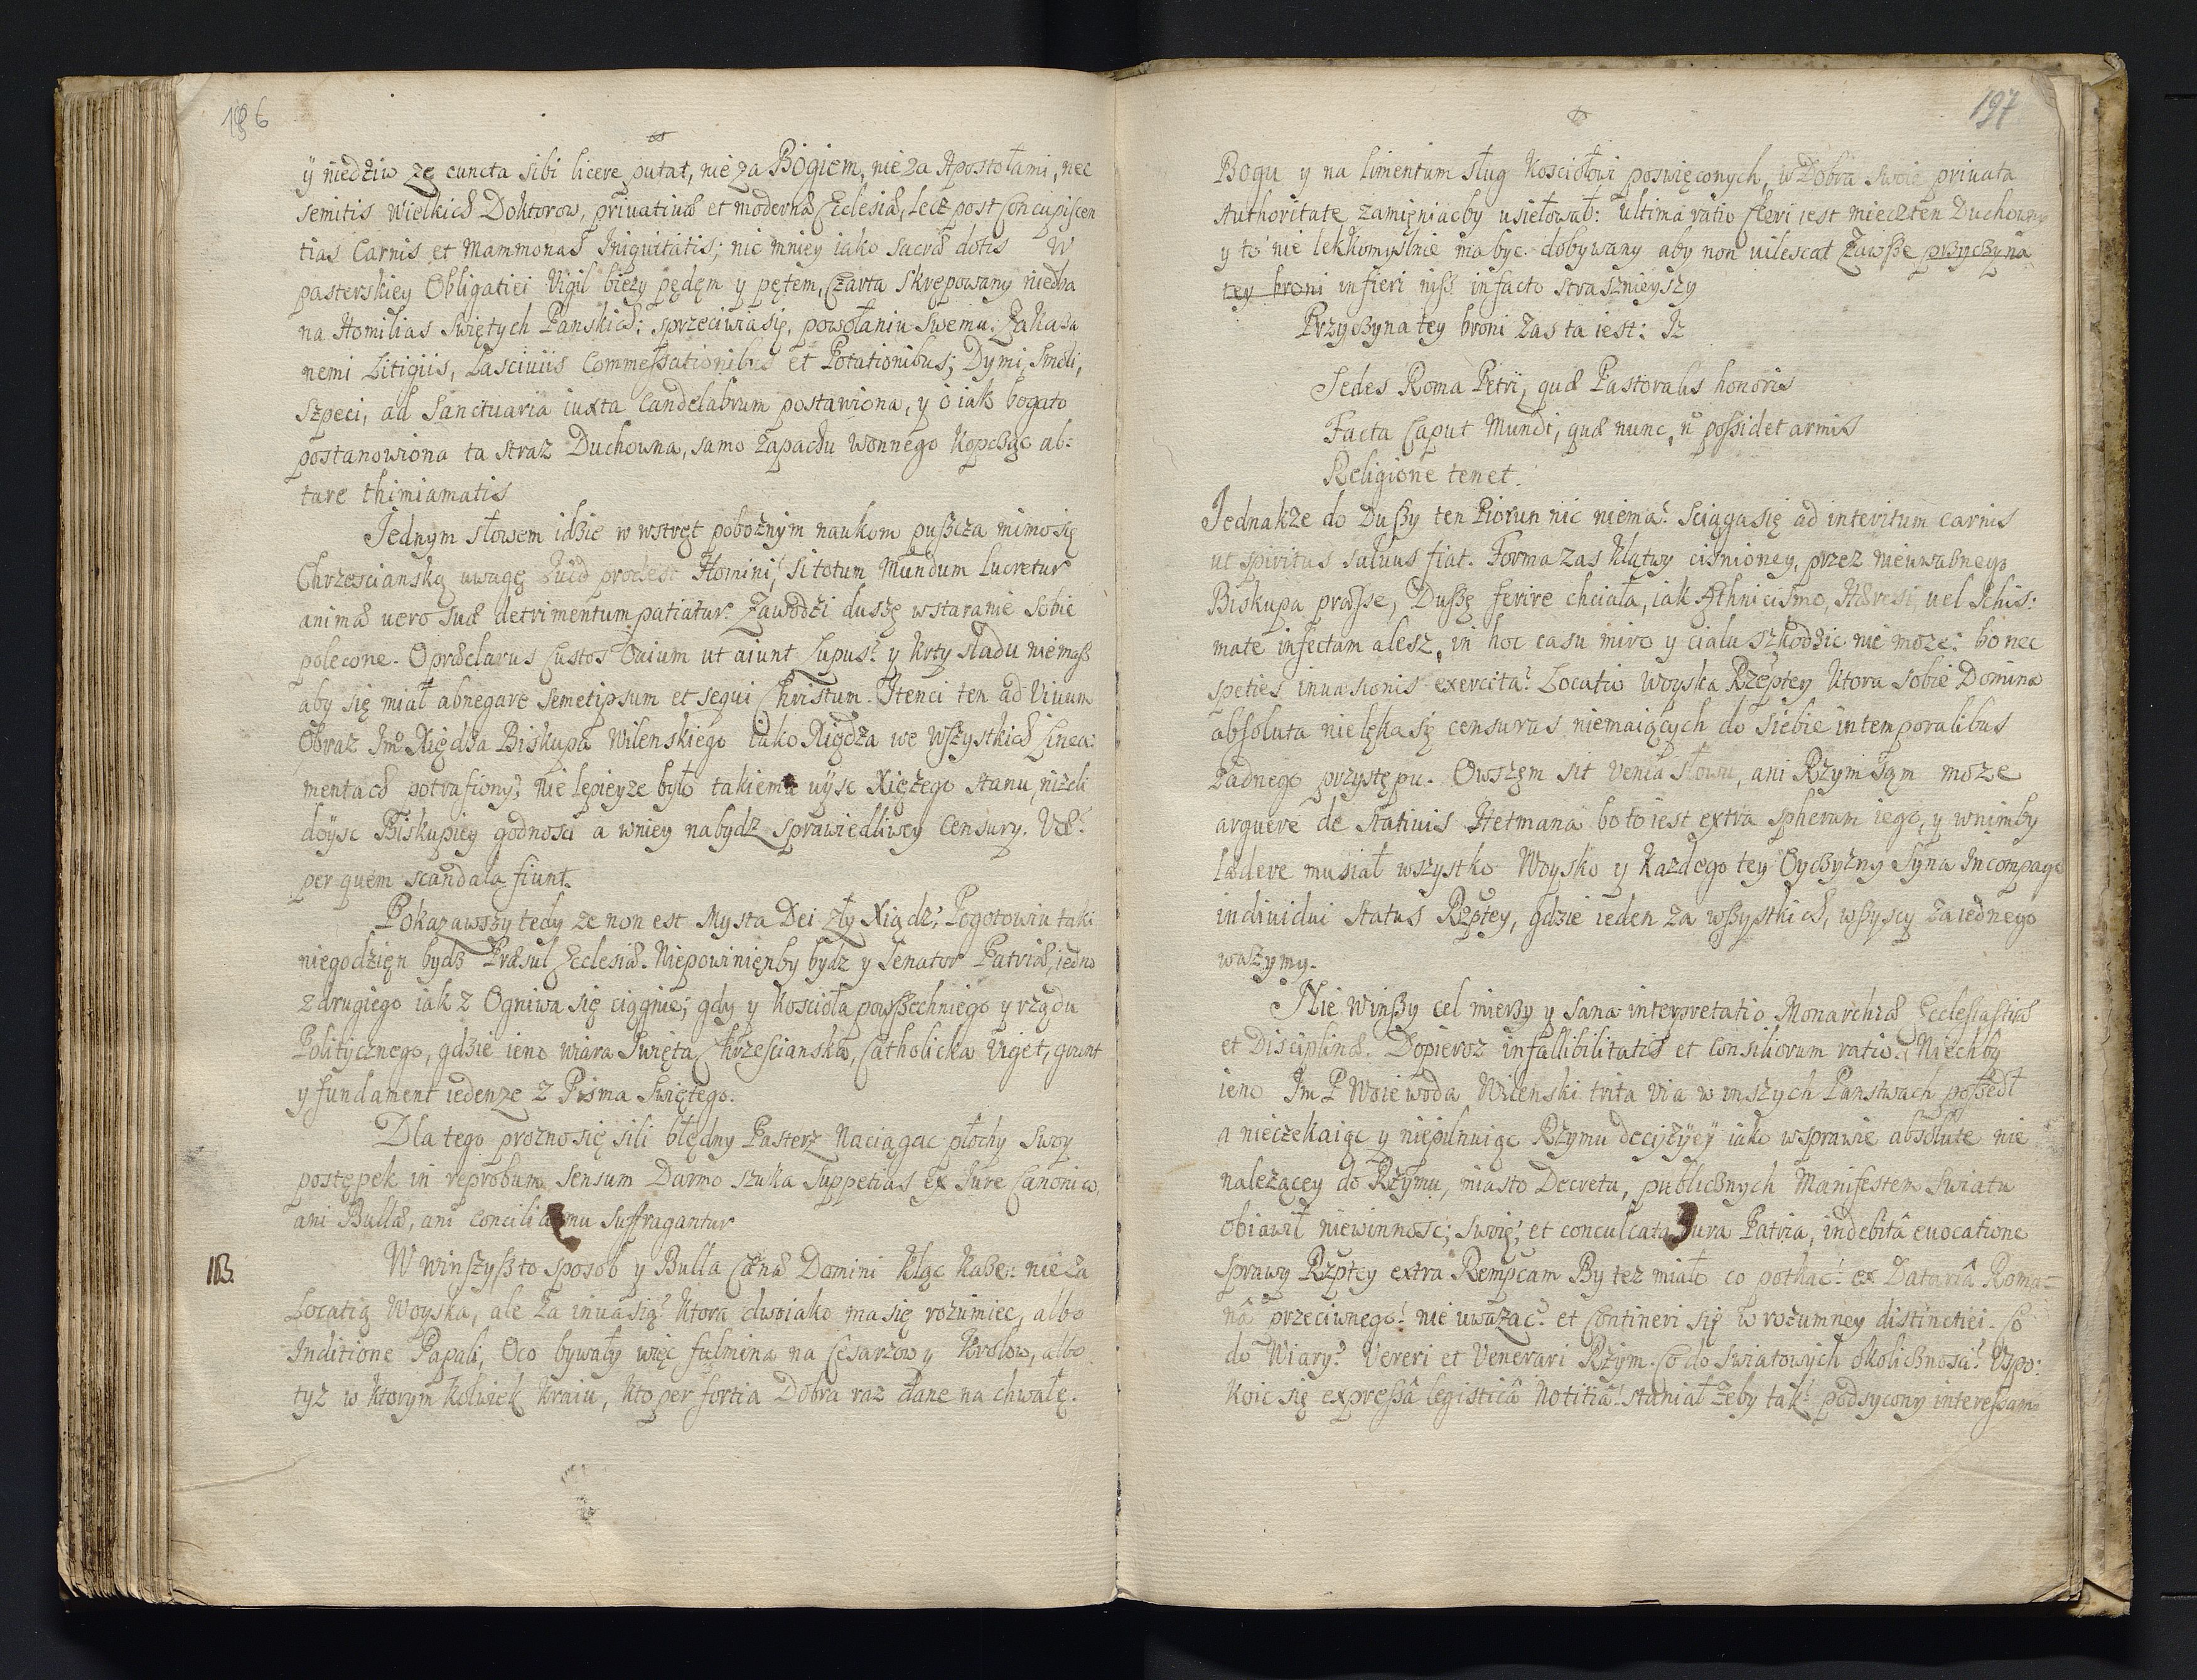 196
ÿ niedziw ze cuncta sibi licere putat, nie za Bogiem, nie za Apostołami, nec
semitis Wielkich Doktorow, priuativæ et modernæ Ecclesiæ, lecz post Concupiscen
tias Carnis et Mammonæ Iniquitatis; nic mniey iako sacræ dotis W
pasterskiey Obligatiei Vigil biezy pędęm y pętem, Czarta skrępowany niedba
na Homilias Swiętych Panskich; sprzeciwia się, powołaniu swemu. Zakaza
nemi Litigiis, Lasciuiis Commessationibus et Potationibus; Dymi, Smoli,
szpeci, ad Sanctuaria iuxta Candelabrum postawiona, y o iak bogato
postanowiona ta straz Duchowna, samo zapachu wonnego kopcząc al-
tare thimiamatis
Jednym słowem idzie w wstręt poboznym naukom pusscza mimo się
Chrzescianską uwagę Quid prodest Homini, si totum Mundum Lucretur
animæ uero suæ detrimentum patiatur. Zawodzi duszę w staranie sobie
polecone. O præclarus Custos Ouium ut aiunt Lupus? y krty sladu niemasz
aby się miał abnegare semetipsum et sequi Christum. Itenci ten ad Viuum
Obraz Jmº Xiędza Biskupa Wilenskiego iako Xiędza we wszystkich Linea-
mentach potrafiony? Nie lepieyze było takiemu uÿsc Xięzego stanu, nizeli
doÿsc Biskupiey godnosci a wniey nabydz sprawiedliwey Censury. Væ!
per quem scandala fiunt.
Pokazawszy tedy ze non est Mysta Dei zły Xiądz, Pogotowiu taki
niegodzięn bydz Præsul Ecclesiæ. Niepowinięnby bydz y Senator Patriæ, iedno
z drugiego iak z Ogniwa się ciągnie; gdy y koscioła powszechniego y rządu
Politycznego, gdzie ieno wiara Swięta Chrzescianska, Catholicka Viget, grunt
y fundament iedenze z Pisma Swiętego.
Dla tego prozno się sili błędny Pasterz Naciągac płochy swoy
postępek in reprobum sensum Darmo szuka suppetias ex Jure Canonico,
ani Bullæ, ani Concilia mu suffragantur
NB.
W winszyszto sposob y Bulla Cænæ Domini kląc kaze: nie za
Locatią Woyska, ale za inuasią? ktora dwoiako ma się rozumiec, albo
In ditione Papali, Oco bywały więc fulmina na Cesarzow y Krolow, albo
tyz w ktorym kolwiek kraiu, kto per fortia Dobra raz dane na chwałę.
197
Bogu y na limentum sług Kosciołowi poswięconych, w Dobra swoie priuata
Authoritate zamięniacby usiełował: ultima ratio fieri iest miecz ten Duchowny
y to nie lekkomyslnie ma byc dobywany aby non uilescat zawsze przyczyna
tey broni in fieri nisz in facto straszniejszy
Przyczyna tey broni zas ta iest: Iz
Sedes Roma Petri, quæ Pastoralis honoris
Facta Caput Mundi, quæ nunc, n possidet armis
Religione tenet.
Jednakze do Duszy ten Piorun nic niema? sciąga się ad interitum carnis
ut spiritus saluus fiat. Forma zas klątwy cisnioney, przez nieuwabnego
Biskupa præsse, Duszę ferire chciała, iak Æthnicismo, Hæresi, uel Schis-
mate infectam alesz, in hoc casu miro y ciału szkodzic nie moze: bo nec
speties inuasionis exercita? Locatio woyska Rzeptey ktora sobie Domina
absoluta nielęka się censuras niemaiących do siebie in temporalibus
zadnego przystępu. Owszęm sit venia słowu, ani Rzym sąm moze
arguere de statiuis Hetmana bo to iest extra spheram iego, y wnimby
lædere musiał wszystko Woysko y kazdego tey Oyczyzny Syna in compage
indiuidui status Rzptey, gdzie ieden za wszystkich, wszyscy za iednego
wazymy.
Nie winszy cel mierzy y sana interpretatio Monarchiæ Ecclesiasticæ
et Disciplinæ. Dopieroz infallibilitatis et Consiliorum ratio. Niechby
ieno Jm P Woiewoda Wilenski trita via w inszych Panstwach poszedł
a nieczekaiąc y niepilnuiąc Rzymu decyzÿeÿ iako w sprawie absolute nie
nalezącey do Rzymu, miasto Decretu, publicznych Manifestem swiatu
obiawił niewinnosc; swoię, et conculcata Jura Patria, indebitâ euocatione
sprawy Rzptey extra Rempcam By tez miało co potkac! ex Datariâ Roma-
nâ przeciwnego! nie uwazac? et Contineri się w rozumney distinctiei. Co
do Wiary? Vereri et Venerari Rzym. Co do swiatowych okolicznosci? Uspo-
koic się expressâ legisticâ notitiâ! staniał zeby tak! podsycony interessami